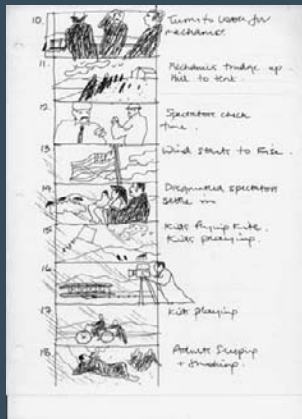 10.
Turns to look for
mechanics.
11.
Mechanics trudge up
hill to tent.
12.
Spectators check
time.
13
Wind starts to Rise.
14.
Disgruntled spectators
settle in
15
Kids flying kite.
Kids playing.
16.
17.
Kids playing
18.
Adults sleeping
+ smoking.